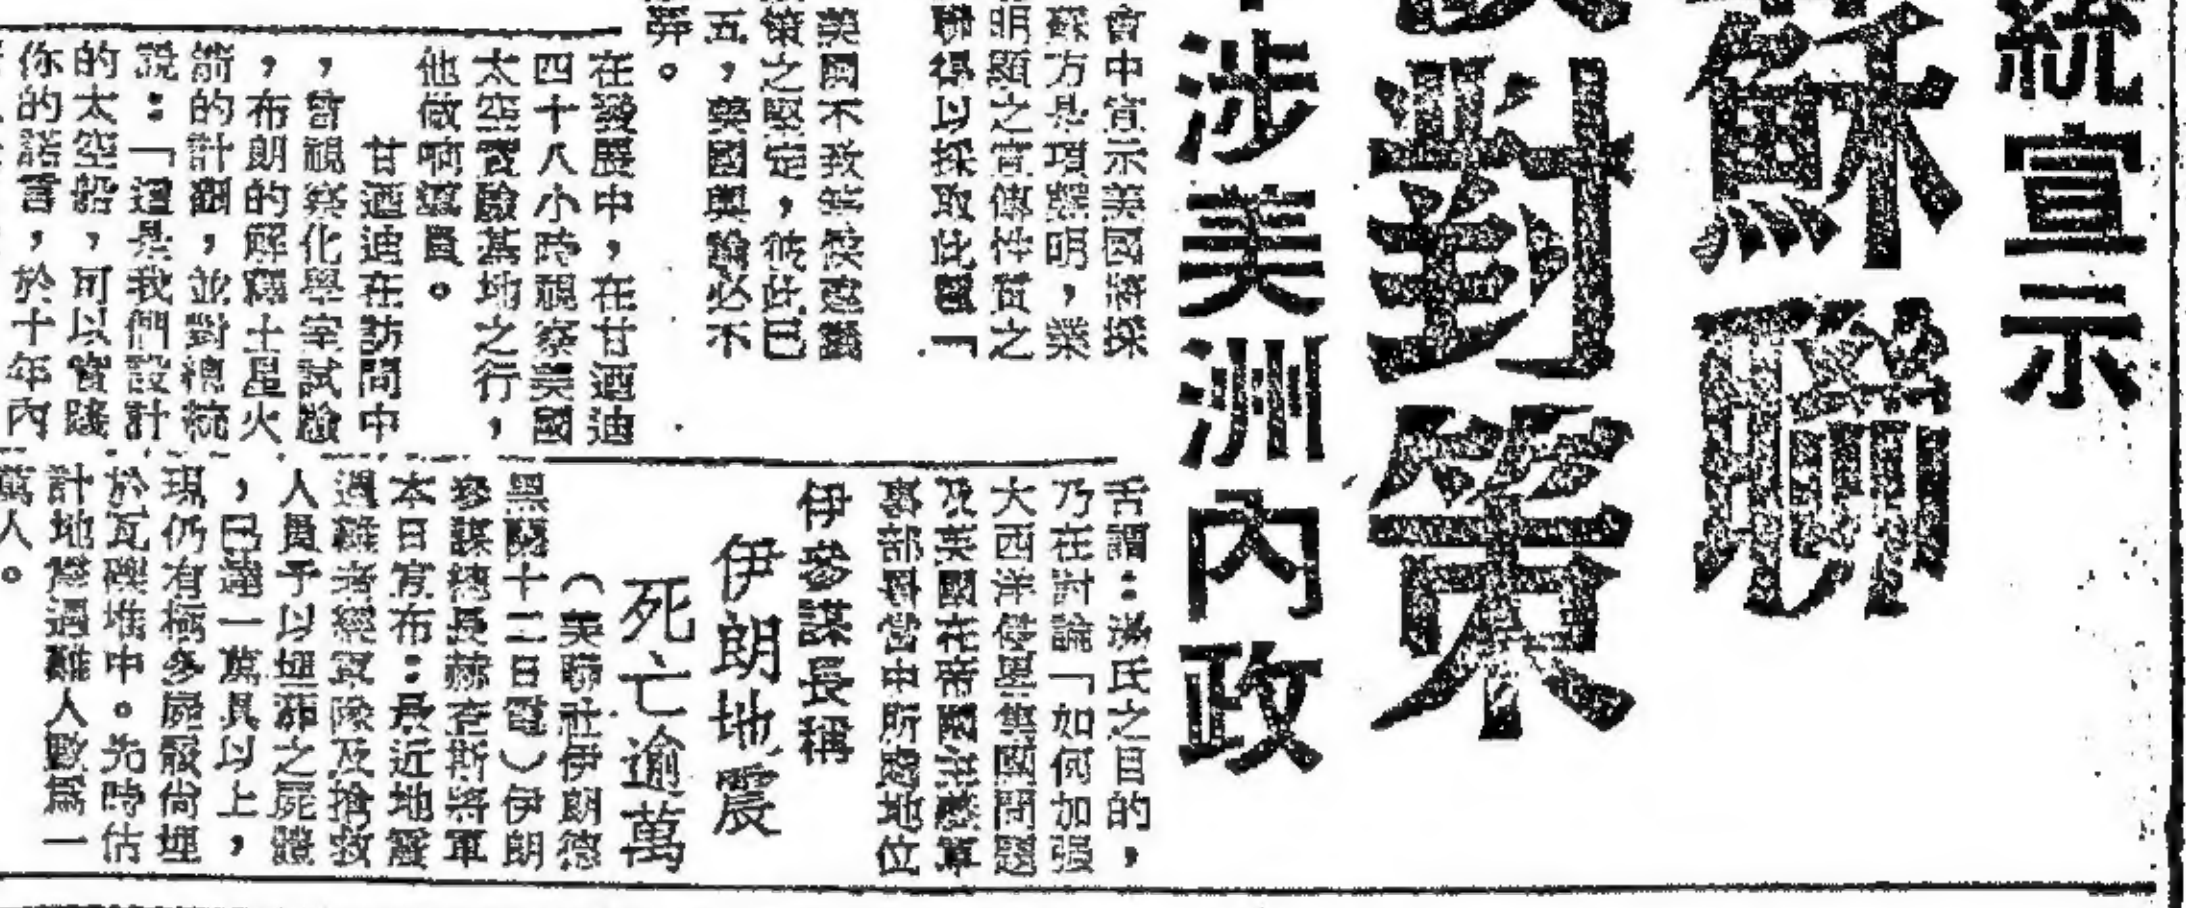 統宣示
蘇聯
對策
涉美洲內政
會中宣示美國將採
蘇方是項聲明,業
明顯之宣傳性質之
聯得以採取此種「
美國不致
策之堅定,彼此已
五,美國輿論必不
弊。
舌謂:
之目的,
乃在討論「如何加强
大西洋
集團問題
及
事部
中所處地位
伊參謀長稱
伊朗地震
死亡逾萬
(美聯社伊朗德
黑蘭十二日電)伊朗
參謀總長赫
斯將軍
本日宣布:最近地震
遇難者經軍隊及搶救
人員予以埋葬之屍體
,已達一萬具以上,
現仍有極多屍骸尙埋
於瓦礫堆中。先時估
計地震遇難人數爲一
萬人。
在發展中,在甘迺迪
四十八小時視察美國
太空實驗基地之行,
他做响導員。
甘迺迪在訪問中
,曾視察化學室試驗
,布朗的解釋土星火
箭的計劃,並對總統
說:「這是我們設計
的太空船,可以實踐
你的諾言,於十年內